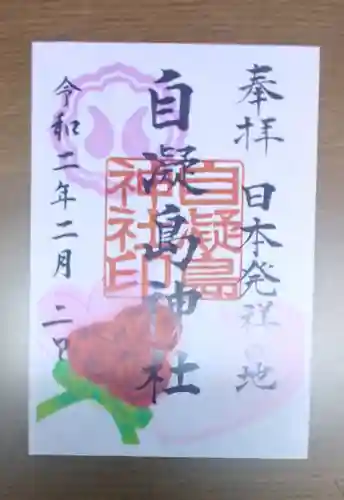 奉拝 日本発祥の地
自凝島神社
自凝島神社印
令和二年二月二日